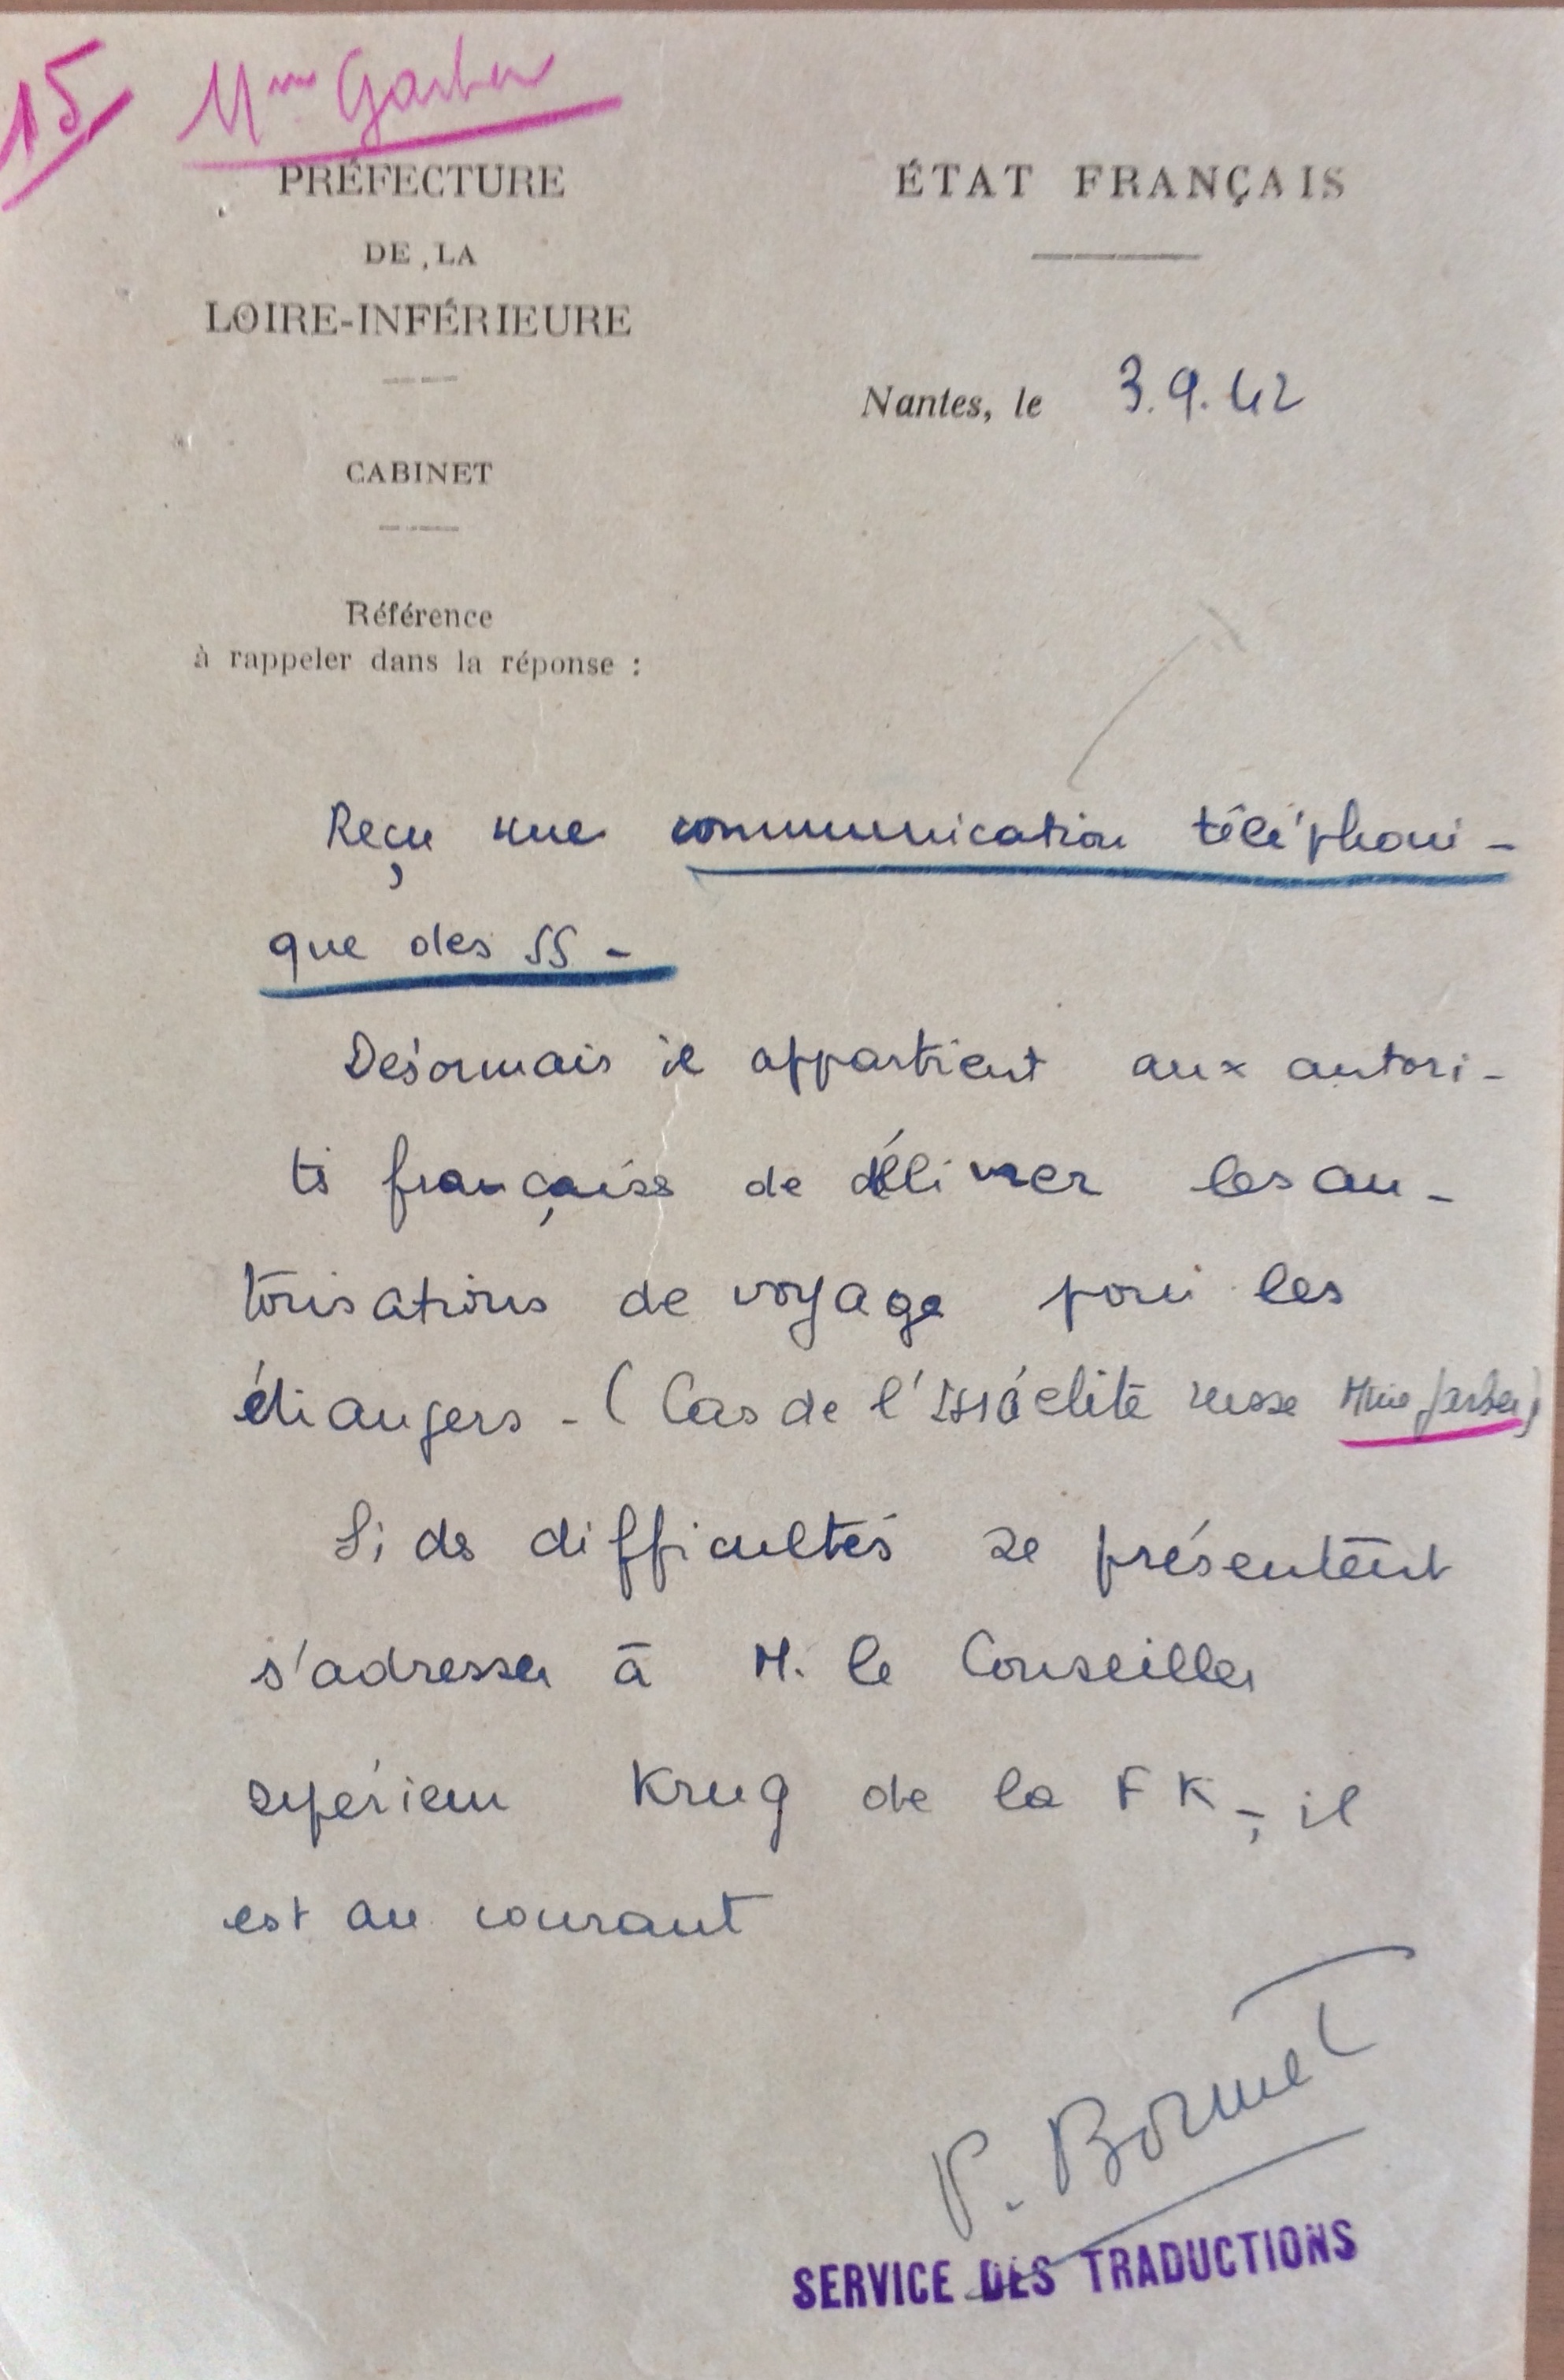 15 Mme Garber
PRÉFECTURE
DE LA
LOIRE-INFÉRIEURE
CABINET
Référence
à rappeler dans la réponse :
ÉTAT FRANÇAIS
Nantes, le 3.9.42
Reçu une communication téléphoni-
que des SS -
Désormais il appartient aux autori-
tés françaises de délivrer les au-
torisations de voyage pour les
étrangers - (Cas de l'Israélite russe Mme Garber)
Si des difficultés se présentent
s'adresser à M. le Conseiller
supérieur Krug de la FK -, il
est au courant
P. Bormet
SERVICE DES TRADUCTIONS